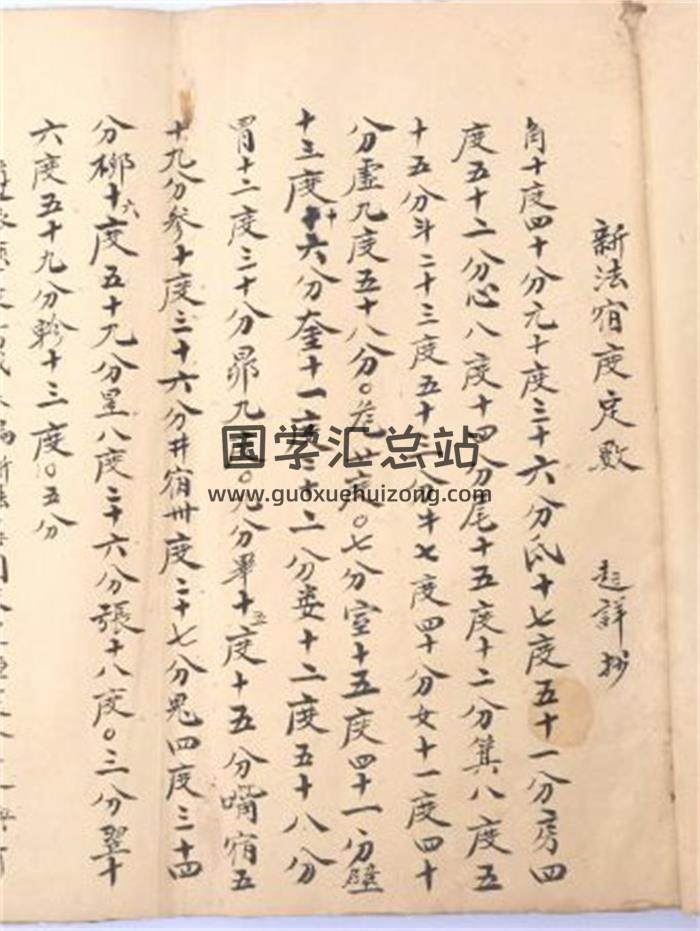 新法宿度定數 起詳抄
角十度四十分亢十度三十六分氐十七度五十一分房四
度五十二分心八度十四分尾十五度十二分箕八度五
十五分斗二十三度五十 分牛七度四十分女十一度四十
分虛九度五十八分〇 〇七分室十五度四十一分壁
十三度十六分奎十一 二分婁十二度五十八分
胃十二度三十分昴九 〇九分畢十五度十五分嘴宿五
十九分參十度三十六分井宿卅度二十七分鬼四度三十四
分柳十六度五十九分星八度二十六分張十八度〇三分翌十
六度五十九分軫十三度〇五分
国学汇总站
www.guoxuehuizong.com